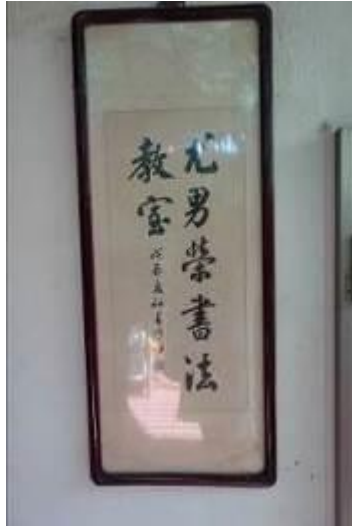 尤男榮書法
教室